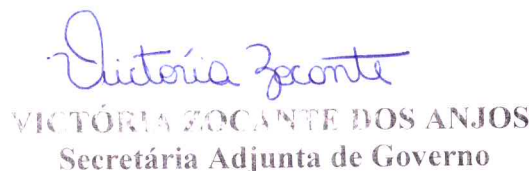 Victória Zocante
VICTÓRIA ZOCANTE DOS ANJOS
Secretária Adjunta de Governo